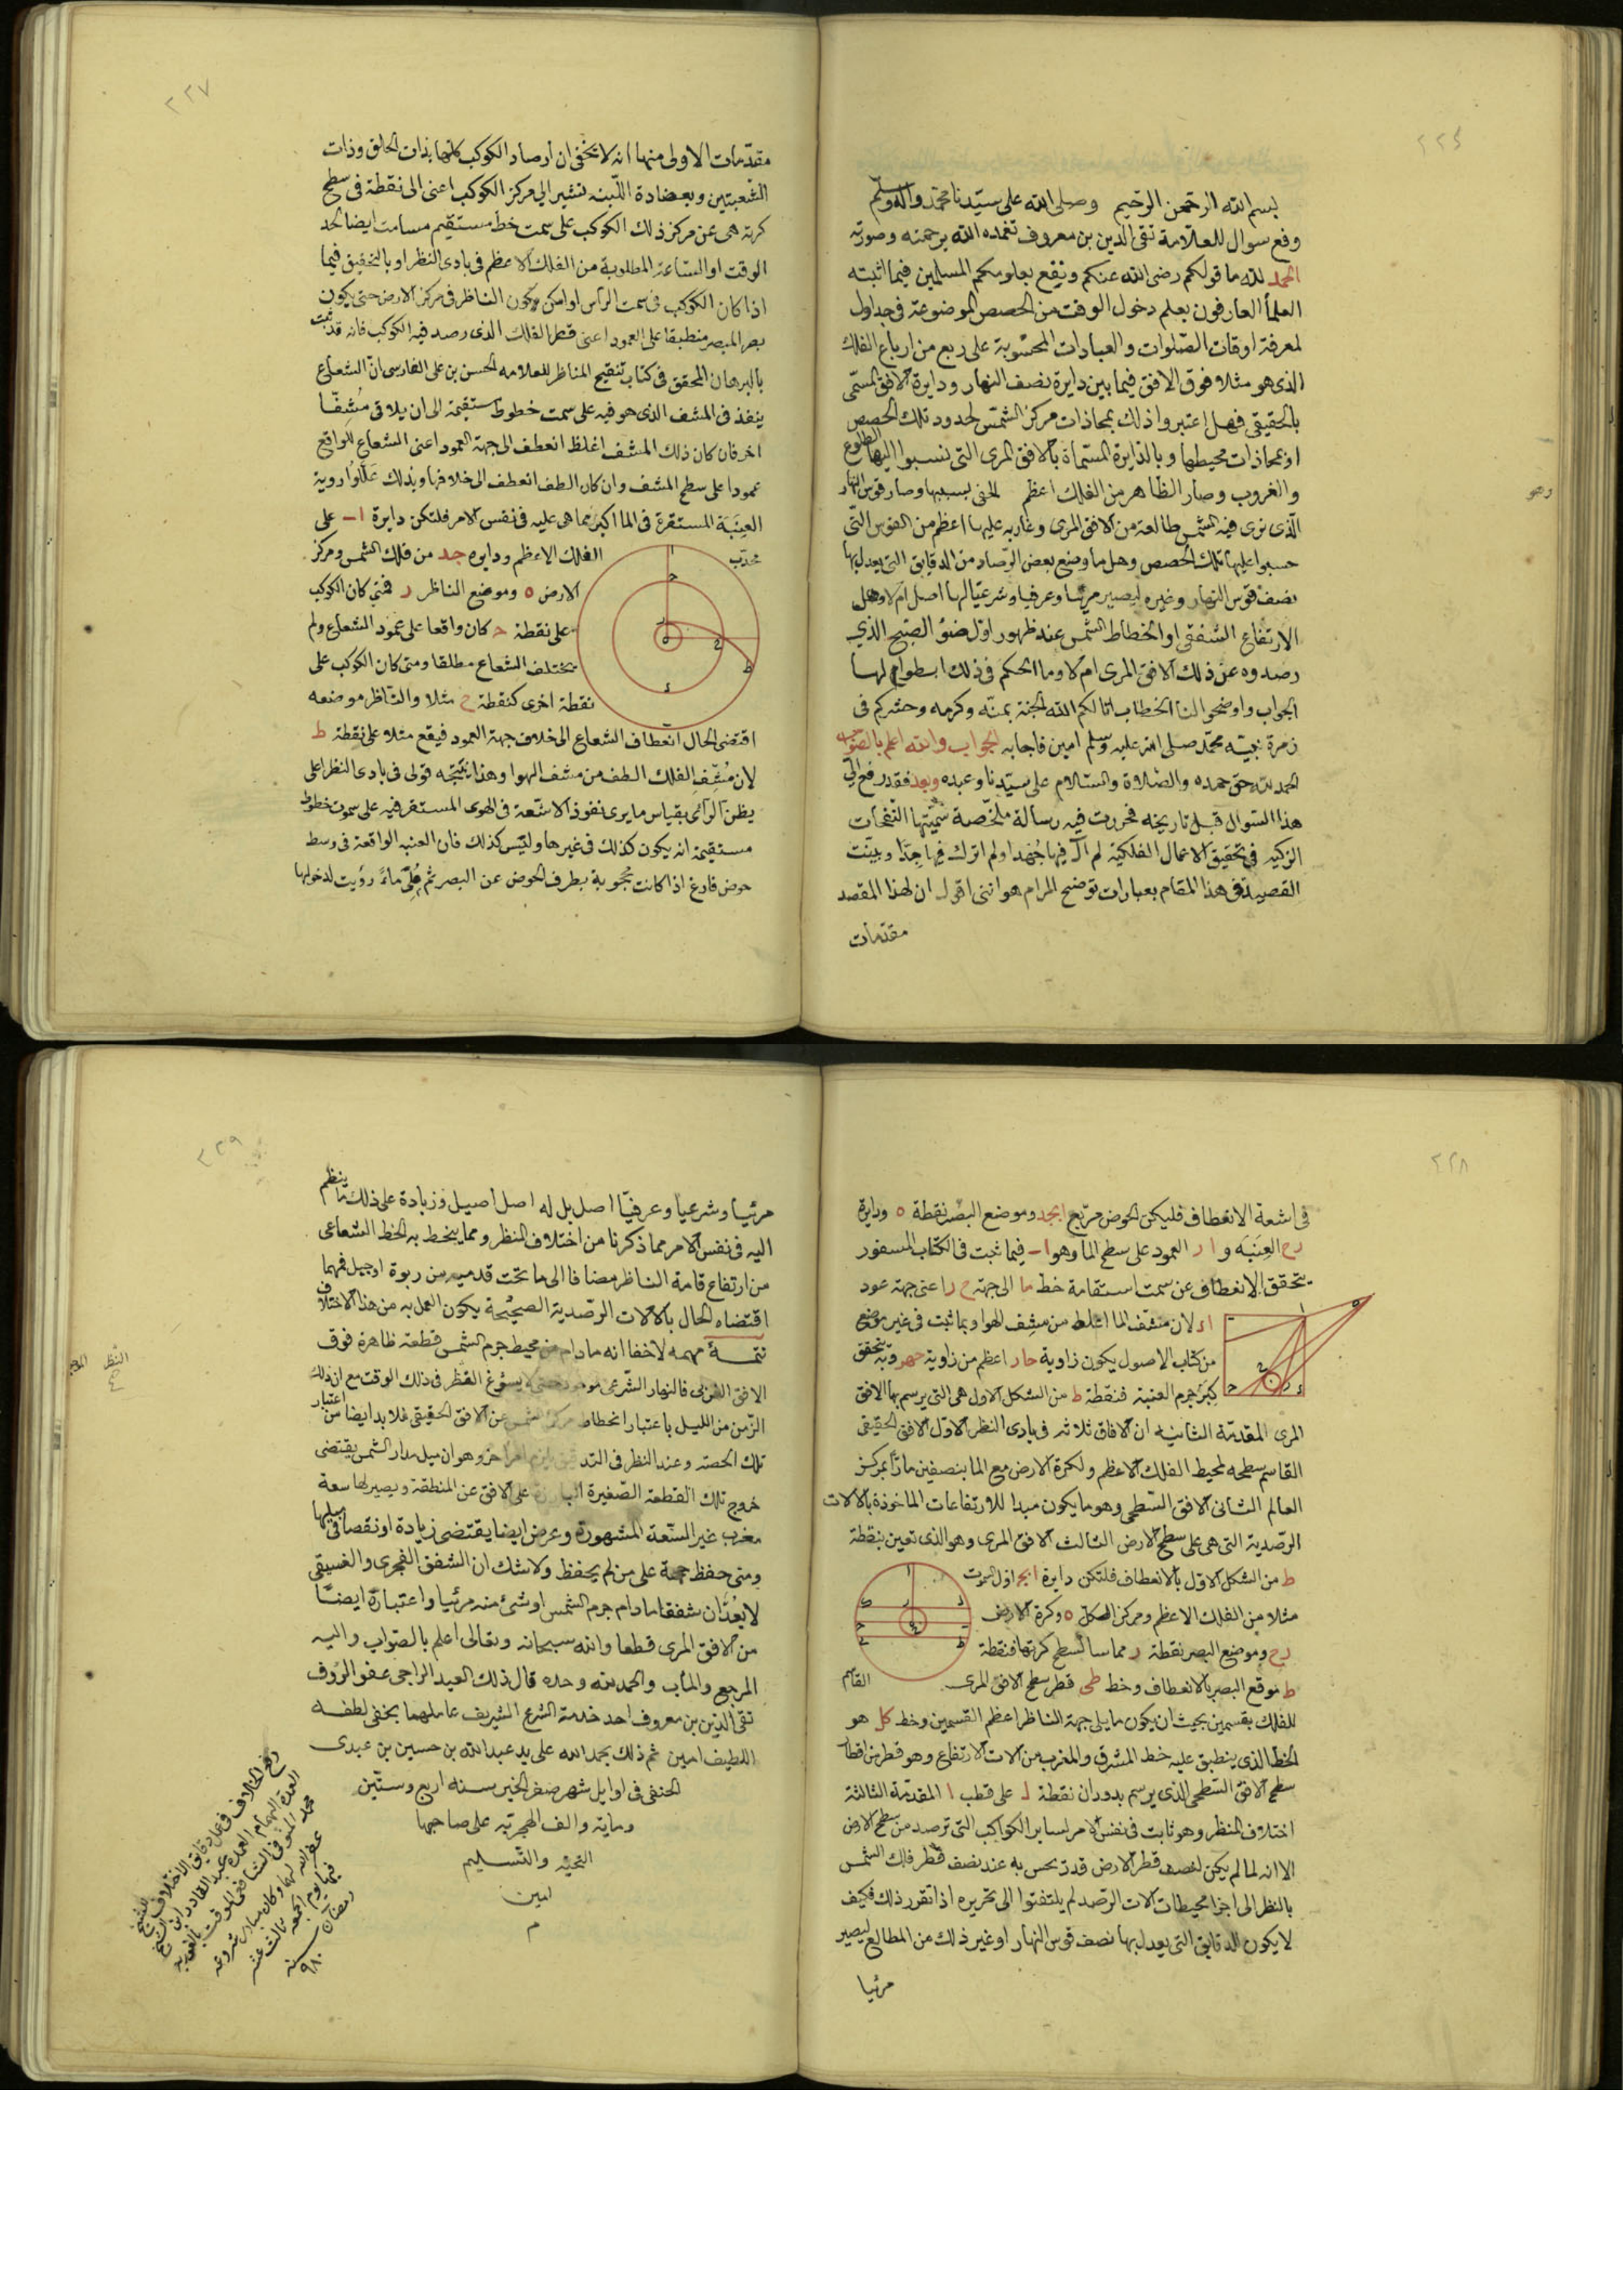 ٢٢٤
بسم الله الرحمن الرحيم وصلى الله على سيدنا محمد واله وسلم
وقع سوال للعلامة تقى الدين بن معروف تغمده الله برحمته وصورته
الحمد لله ما قولكم رضى الله عنكم ونفع بعلومكم المسلمين فيما اثبته
العلمأ العارفون بعلم دخول الوقت من الحصص الموضوعة فى جداول
لمعرفة اوقات الصلوات والعبادات المحسوبة على ربع من ارباع الفلك
الذى هو مثلا فوق الافق فيما بين دايرة نصف النهار ودايرة الافق المسمى
بالحقيقى فهل اعتبروا ذلك بمحاذات مركز الشمس لحدود تلك الحصص
او بمحاذات محيطها وبالدايرة المسماة بالافق المرى التى ننسبوا اليها الطلوع
والغروب وصار الظاهر من الفلك اعظم لخفى بسببها وصار قوس النهار
وهو
الذى نرى فيه الشمس طالعة من الافق المرى وغاربه عليها اعظم من القوس التى
حسبوا عليها تلك الحصص وهل ما وضع بعض الرصاد من الدقايق التى يعدل بها
نصف قوس النهار وغيره ليصير مرئيا وعرفيا وشرعيا لها اصل ام لا وهل
الارتفاع الشفقى او انحطاط الشمس عند ظهور اول ضؤ الصبح الذي
رصدوه عن ذلك الافق المرى ام لا وما الحكم فى ذلك ابسطوا لها
الجواب واوضحوا لنا الخطاب اثابكم الله الجنة بمنه وكرمه وحشركم فى
زمرة نبيه محمد صلى الله عليه وسلم امين فاجابه الجواب والله اعلم بالصواب
الحمد لله حق حمده والصلاة والسلام على سيدنا وعبده وبعد فقد رفع الي
هذا السوال قبل تاريخه فحررت فيه رسالة ملخصة سميتها النفحات
الزكيه فى تحقيق الاعمال الفلكية لم آل فيها جهدا ولم اترك فيها جدا وبينت
القصيد فى هذا المقام بعبارات توضح المرام هو اننى اقول ان لهذا المقصد
مقدمات
٢٢٧
مقدمات الاولى منها انه لا يخفى ان ارصاد الكوكب كلها بذات الحلق وذات
الشعبتين وبعضادة اللبنه نشير الى مركز الكوكب اعنى الى نقطة فى سطح
كرته هى عن مركز ذلك الكوكب على سمت خط مستقيم مسامت ايضا لحد
الوقت او الساعة المطلوبة من الفلك الاعظم فى بادى النظر او بالتحقيق فيما
اذا كان الكوكب فى سمت الراس او امكن كون الناظر فى مركز الارض حتى يكون
بصر المبصر منطبقا على العمود اعنى قطر الفلك الذى رصد فيه الكوكب فانه قد ثبت
بالبرهان المحقق فى كتاب تنقيح المناظر للعلامه الحسن بن على الفارسى ان الشعاع
ينفذ فى المشف الذى هو فيه على سمت خطوط مستقيمة الى ان يلاقى مشفا
اخر فان كان ذلك المشف اغلظ انعطف الى جهة العمود اعنى الشعاع الواقع
عمودا على سطح المشف وان كان الطف انعطف الى خلافها وبذلك عللوا روية
العنبة المستقرة فى الما اكبر مما هى عليه فى نفس الامر فلتكن دايرة اب على
محدب
الفلك الاعظم ودايره جد من فلك الشمس ومركز
الارض ه وموضع الناظر ر فمتى كان الكوكب
على نقطة ح كان واقعا على عمود الشعاع ولم
يختلف الشعاع مطلقا ومتى كان الكوكب على
نقطة اخرى كنقطة ح مثلا والناظر موضعه
اقتضى الحال انعطاف الشعاع الى خلاف جهة العمود فيقع مثلا على نقطة ط
لان مشف الفلك الطف من مشف الهوا وهذا نتيجه قولى فى بادى النظر اعلى
يظن الرأى بقياس ما يرى نفوذ الاشعة فى الهوى المستقر فيه على سموت خطوط
مستقيمة انه يكون كذلك فى غيرها وليس كذلك فان العنبه الواقعة فى وسط
حوض فارغ اذا كانت محجوبة بطرف الحوض عن البصر ثم ملئ ماءً رؤيت لدخولها
٢٢٨
فى اشعة الانعطاف فليكن الحوض مربع ابجد وموضع البصر نقطة ه ودايرة
رح العنبه و ا ر العمود على سطح الما وهو اب فيما ثبت فى الكتاب المسفور
يتحقق الانعطاف عن سمت استقامة خط ما الى جهة ح ر اعنى جهة عود
اء لان مشف الما اغلظ من مشف الهوا وبما ثبت فى غير موضع
من كتاب الاصول يكون زاوية حار اعظم من زاوية حهر وبه يتحقق
كبر جرم العنبة فنقطة ط من الشكل الاول هى التى يرسم بها الافق
المرى المقدمة الثانيه ان الافاق ثلاثه فى بادى النظر الاول الافق الحقيقى
القاسم سطحه لمحيط الفلك الاعظم ولكرة الارض مع الما بنصفين ماراً بمركز
العالم الثانى الافق السطحى وهو ما يكون مبدا للارتفاعات الماخوذة بالالات
الرصدية التى هى على سطح الارض الثالث الافق المرى وهو الذى تعين بنقطة
ط من الشكل الاول بالانعطاف فلتكن دايرة ابج اول السموت
مثلا من الفلك الاعظم ومركز الكل ه وكرة الارض
رح وموضع البصر نقطة ر مماسا لسطح كرتها فنقطة
ط موقع البصر بالانعطاف وخط طى قطر سطح الافق المرى القاسم
للفلك بقسمين بحيث ان يكون ما يلى جهة الناظر اعظم القسمين وخط كل هو
الخط الذى ينطبق عليه خط المشرق والمغرب من الات الارتفاع وهو قطر من اقطار
سطح الافق السطحى الذى يرسم بدوران نقطة ل على قطب ا المقدمة الثالثة
اختلاف المنظر وهو ثابت فى نفس الامر لساير الكواكب التى ترصد من سطح الارض
الا انه لما لم يكن لنصف قطر الارض قدر يحس به عند نصف قطر فلك الشمس
بالنظر الى اجزا محيطات الات الرصد لم يلتفتوا الى تحريره اذا تقرر ذلك فكيف
لا يكون الدقايق التى يعدل بها نصف قوس النهار او غير ذلك من المطالع ليصير
مرئيا
٢٢٩
مرئيا وشرعيا وعرفيا اصل بل له اصل اصيل وزيادة على ذلك ما ينظم
اليه فى نفس الامر مما ذكرنا من اختلاف المنظر ومما ينحط به الخط الشعاعى
من ارتفاع قامة الناظر مضافا الى ما تحت قدميه من ربوة او جبل فمهما
اقتضاه الحال بالالات الرصدية الصحيحة يكون العمل به من هذا الاختلاف
تتمة مهمه لا خفا انه ما دام من محيط جرم الشمس قطعة ظاهرة فوق
الافق الغربى فالنهار الشرعى موجود حتى لا يسوغ الفطر فى ذلك الوقت مع ان ذلك
الزمن من الليل باعتبار انحطاط مركز الشمس عن الافق الحقيقى فلا بد ايضا من اعتبار
تلك الحصه وعند النظر فى التدقيق يلزم امر اخر وهو ان ميل مدار الشمس يقتضى
خروج تلك القطعة الصغيرة على الافق عن المنطقة ويصير لها سعة
مغرب غير السعة المشهورة وعرض ايضا يقتضى زيادة او نقصا فى ميلها
ومن حفظ حجة على من لم يحفظ ولا شك ان الشفق الفجرى والغسيقى
لا يعدان شفقا ما دام جرم الشمس او شئ منه مرئيا واعتباره ايضا
من الافق المرى قطعا والله سبحانه وتعالى اعلم بالصواب واليه
المرجع والمأب والحمد لله وحده قال ذلك العبد الراجى عفو الرؤف
تقى الدين بن معروف احد خدمة الشرع الشريف عاملهما بخفى لطفه
اللطيف امين ثم ذلك بحمد الله على يد عبد الله بن حسين بن عبدى
الحنفى فى اوايل شهر صفر الخير سنه اربع وستين
وماية والف الهجرية على صاحبها
التحية والتسليم
امين
م
رفع الخلاف فى عمل دقايق الاختلاف للشيخ
العمدة الهمام العمدة عبد القادر ابن الشيخ
محمد المنوفى الشافعى الموقت بالغورية
غفر الله لهما وكان مبادى شروعه
فيها يوم الجمعه ثالث عشر
رمضان سنة
٩٨٠